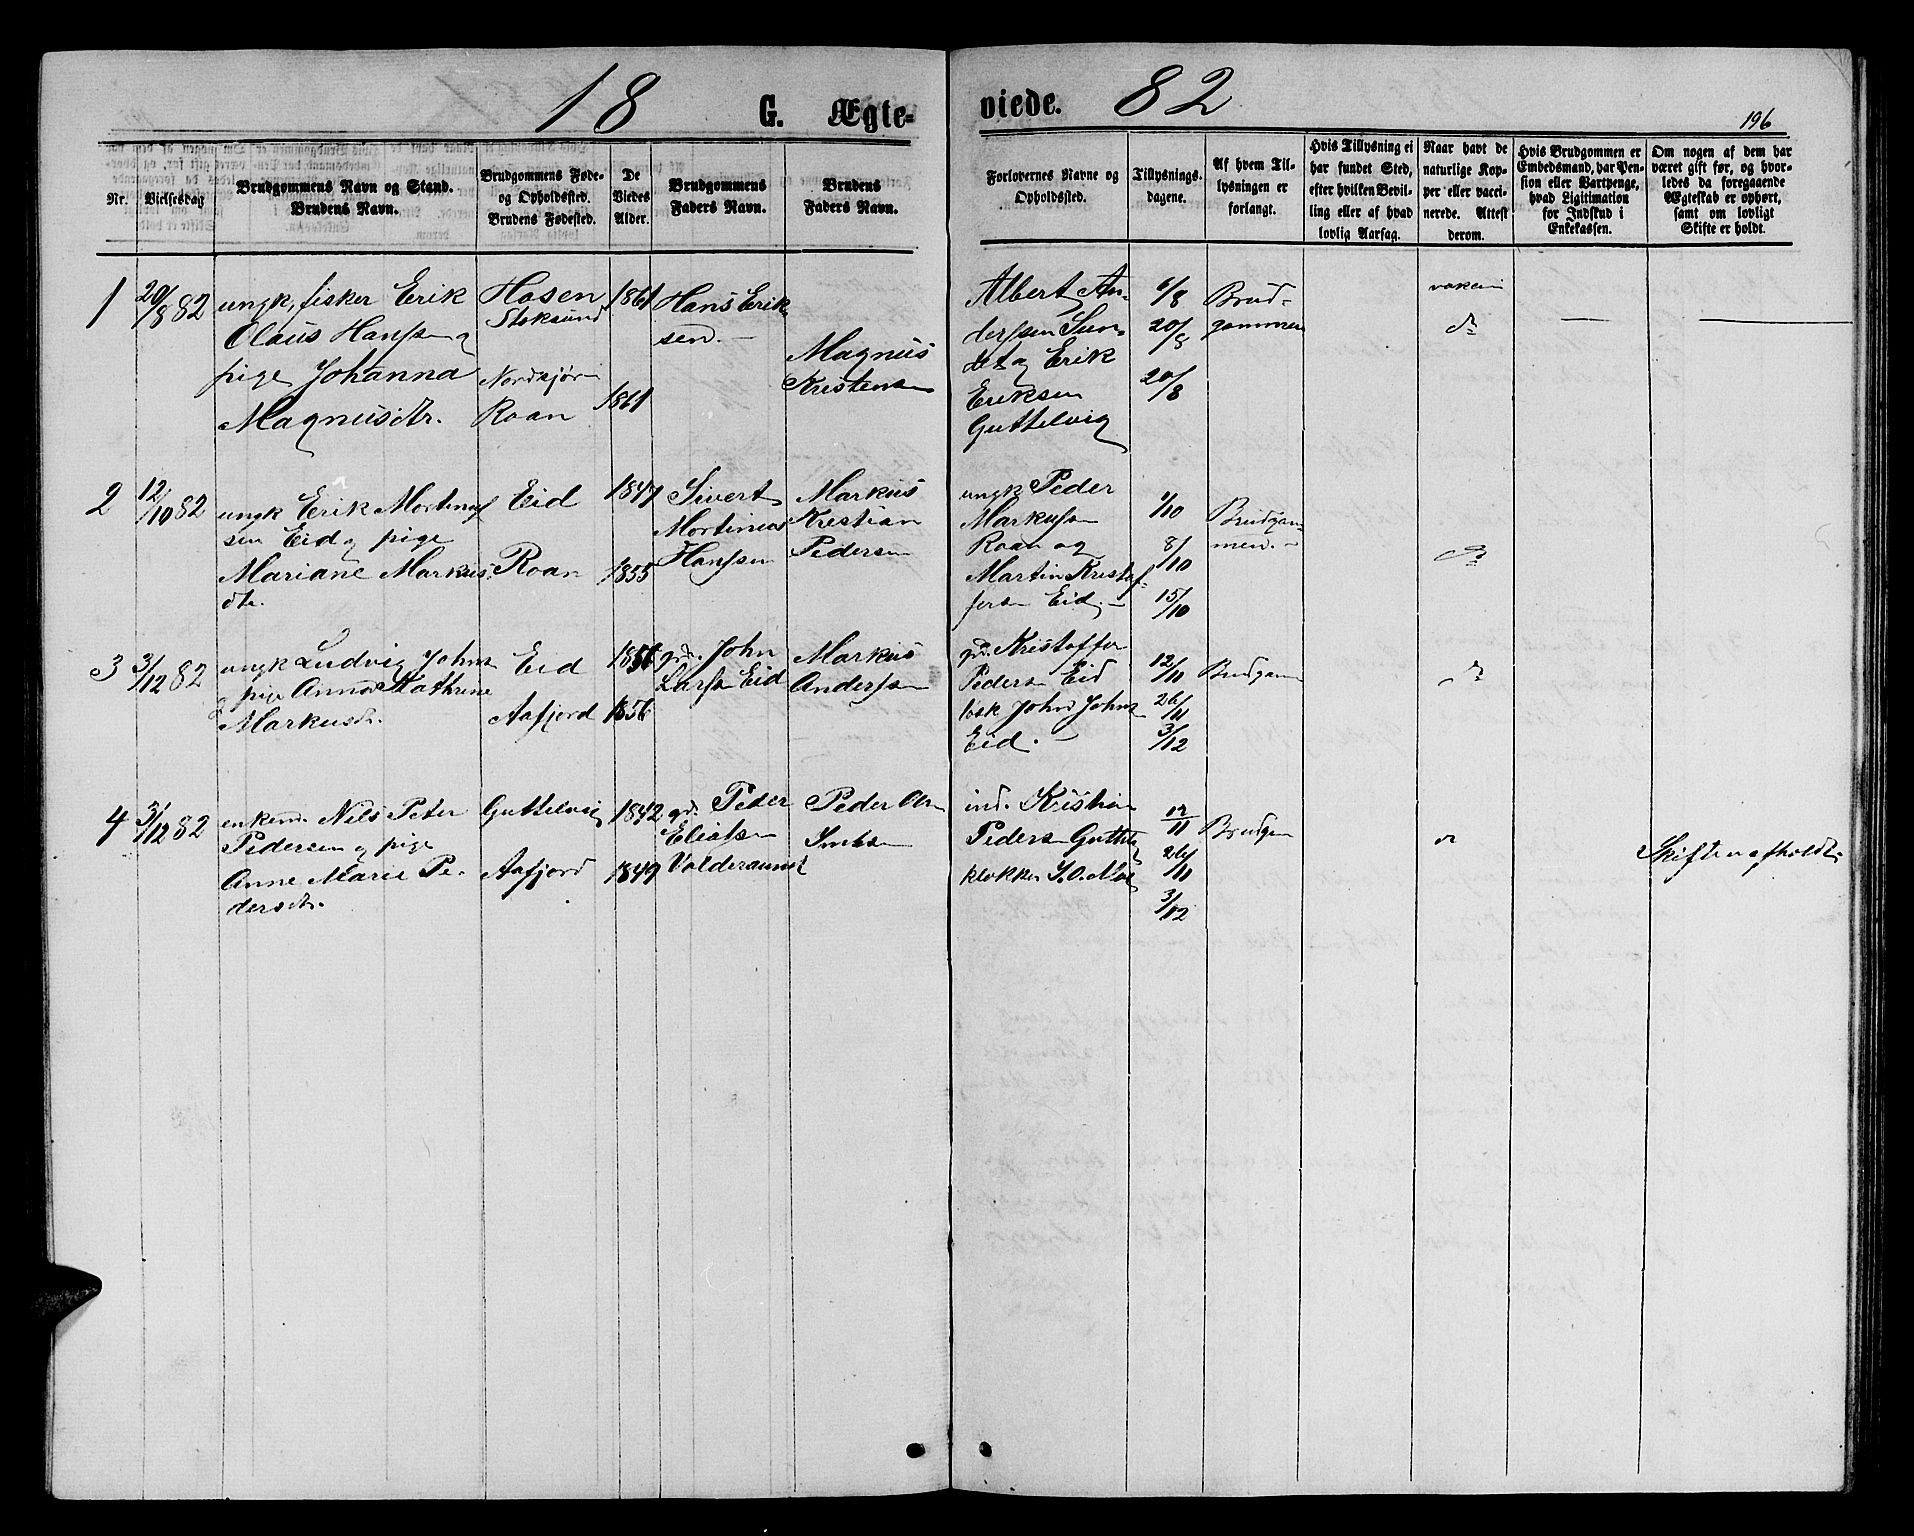 18 G. Ægte-
viede. 82
196
Nr.
Vielsesdag
Brudgommens Navn og Stand.
Brudens Navn.
Brudgommens Føde-
og Opholdssted.
Brudens Fødested.
De
Viedes
Alder.
Brudgommens
Faders Navn.
Brudens
Faders Navn.
Forlovernes Navne og
Opholdssted.
Tillysnings-
dagene.
Af hvem Til-
lysningen er
forlangt.
Hvis Tillysning ei
har fundet Sted,
efter hvilken Bevil-
ling eller af hvad
lovlig Aarsag.
Naar havt de
naturlige Kop-
per eller vacci-
nerede. Attest
derom.
Hvis Brudgommen er
Embedsmand, har Pen-
sion eller Vartpenge,
hvad Ligitimation
for Indskud i
Enkekassen.
Om nogen af dem har
været gift før, og hvor-
ledes da foregaaende
Ægteskab er ophørt,
samt om lovligt
Skifte er holdt.
1
20/8 82
ungk, fisker Erik
Olaus Hanssen og
pige Johanna
Magnusdtr.
Hosen
Stoksund
Roan
1861
1861
Hans Erik-
sen.
Magnus
Kristensen
Albert An-
derssen Sun-
det og Erik
Eriksen
Guttelvig
6/8
20/8
20/8
Brud-
gommen
do
2
12/10 82
ungk Erik Mortinus
sen Eid og pige
Mariane Markus
dtr.
Eid
Roan
1847
1855
Sivert
Mortinus
Hanssen
Markus
Kristian
Pedersen
ungk Peder
Markussen
Roan og
Martin Kristof-
fersen Eid.
1/10
8/10
15/10
Brudgom-
men.
do
3
3/12 82
ungk Ludvig Johnsen
og pige Anna Kathrine
Markusdtr.
Eid
Aafjord
1856
1856
grd. John
Larssen Eid
Markus
Anderssen
grd. Kristoffer
Pedersen Eid
John Johnsen
Eid.
12/11
26/11
3/12
Brudgom
do
4
3/12 82
enkem. Nils Peter
Pedersen og pige
Anne Marie Pe-
dersdtr.
Guttelvig
Aafjord
1842
1849
grd. Peder
Eliassen
Valdersund
Peder Olsen
ind. Kristian
Pedersen Guttelv
klokker
12/11
26/11
3/12
Brudgom
do
Skiften afholdt.